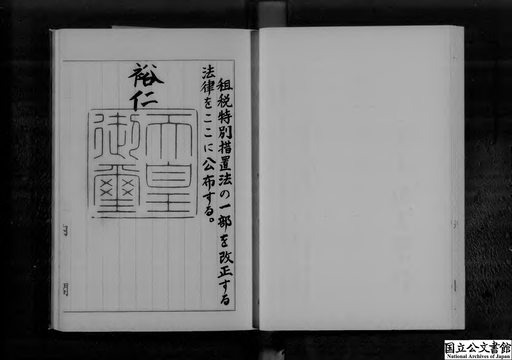 租税特別措置法の一部を改正する
法律をここに公布する。
裕仁
天皇
御璽
国立公文書館
National Archives of Japan